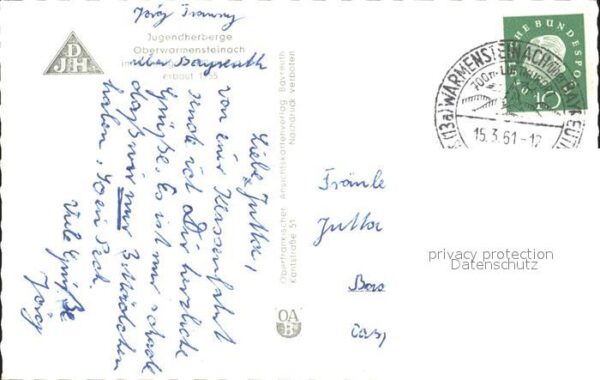 Jörg
DJH
Jugendherberge
Oberwarmensteinach
über Bayreuth
erbaut 1955
Liebe Jutta,
von einer Klassenfahrt
sende ich Dir herzliche
Grüße. Es ist nur schade
daß wir nur 3 Mädchen
haben, so ein Pech
Viele Grüße
Jörg
Oberfränkischer Ansichtskartenverlag Bayreuth
Kantstraße 51 Nachdruck verboten
OA
B
CHE BUNDESPO
10
(13a) WARMENSTEINACH über BAYREUTH
15.3.61-12
Fräule
Jutta
privacy protection
Datenschutz